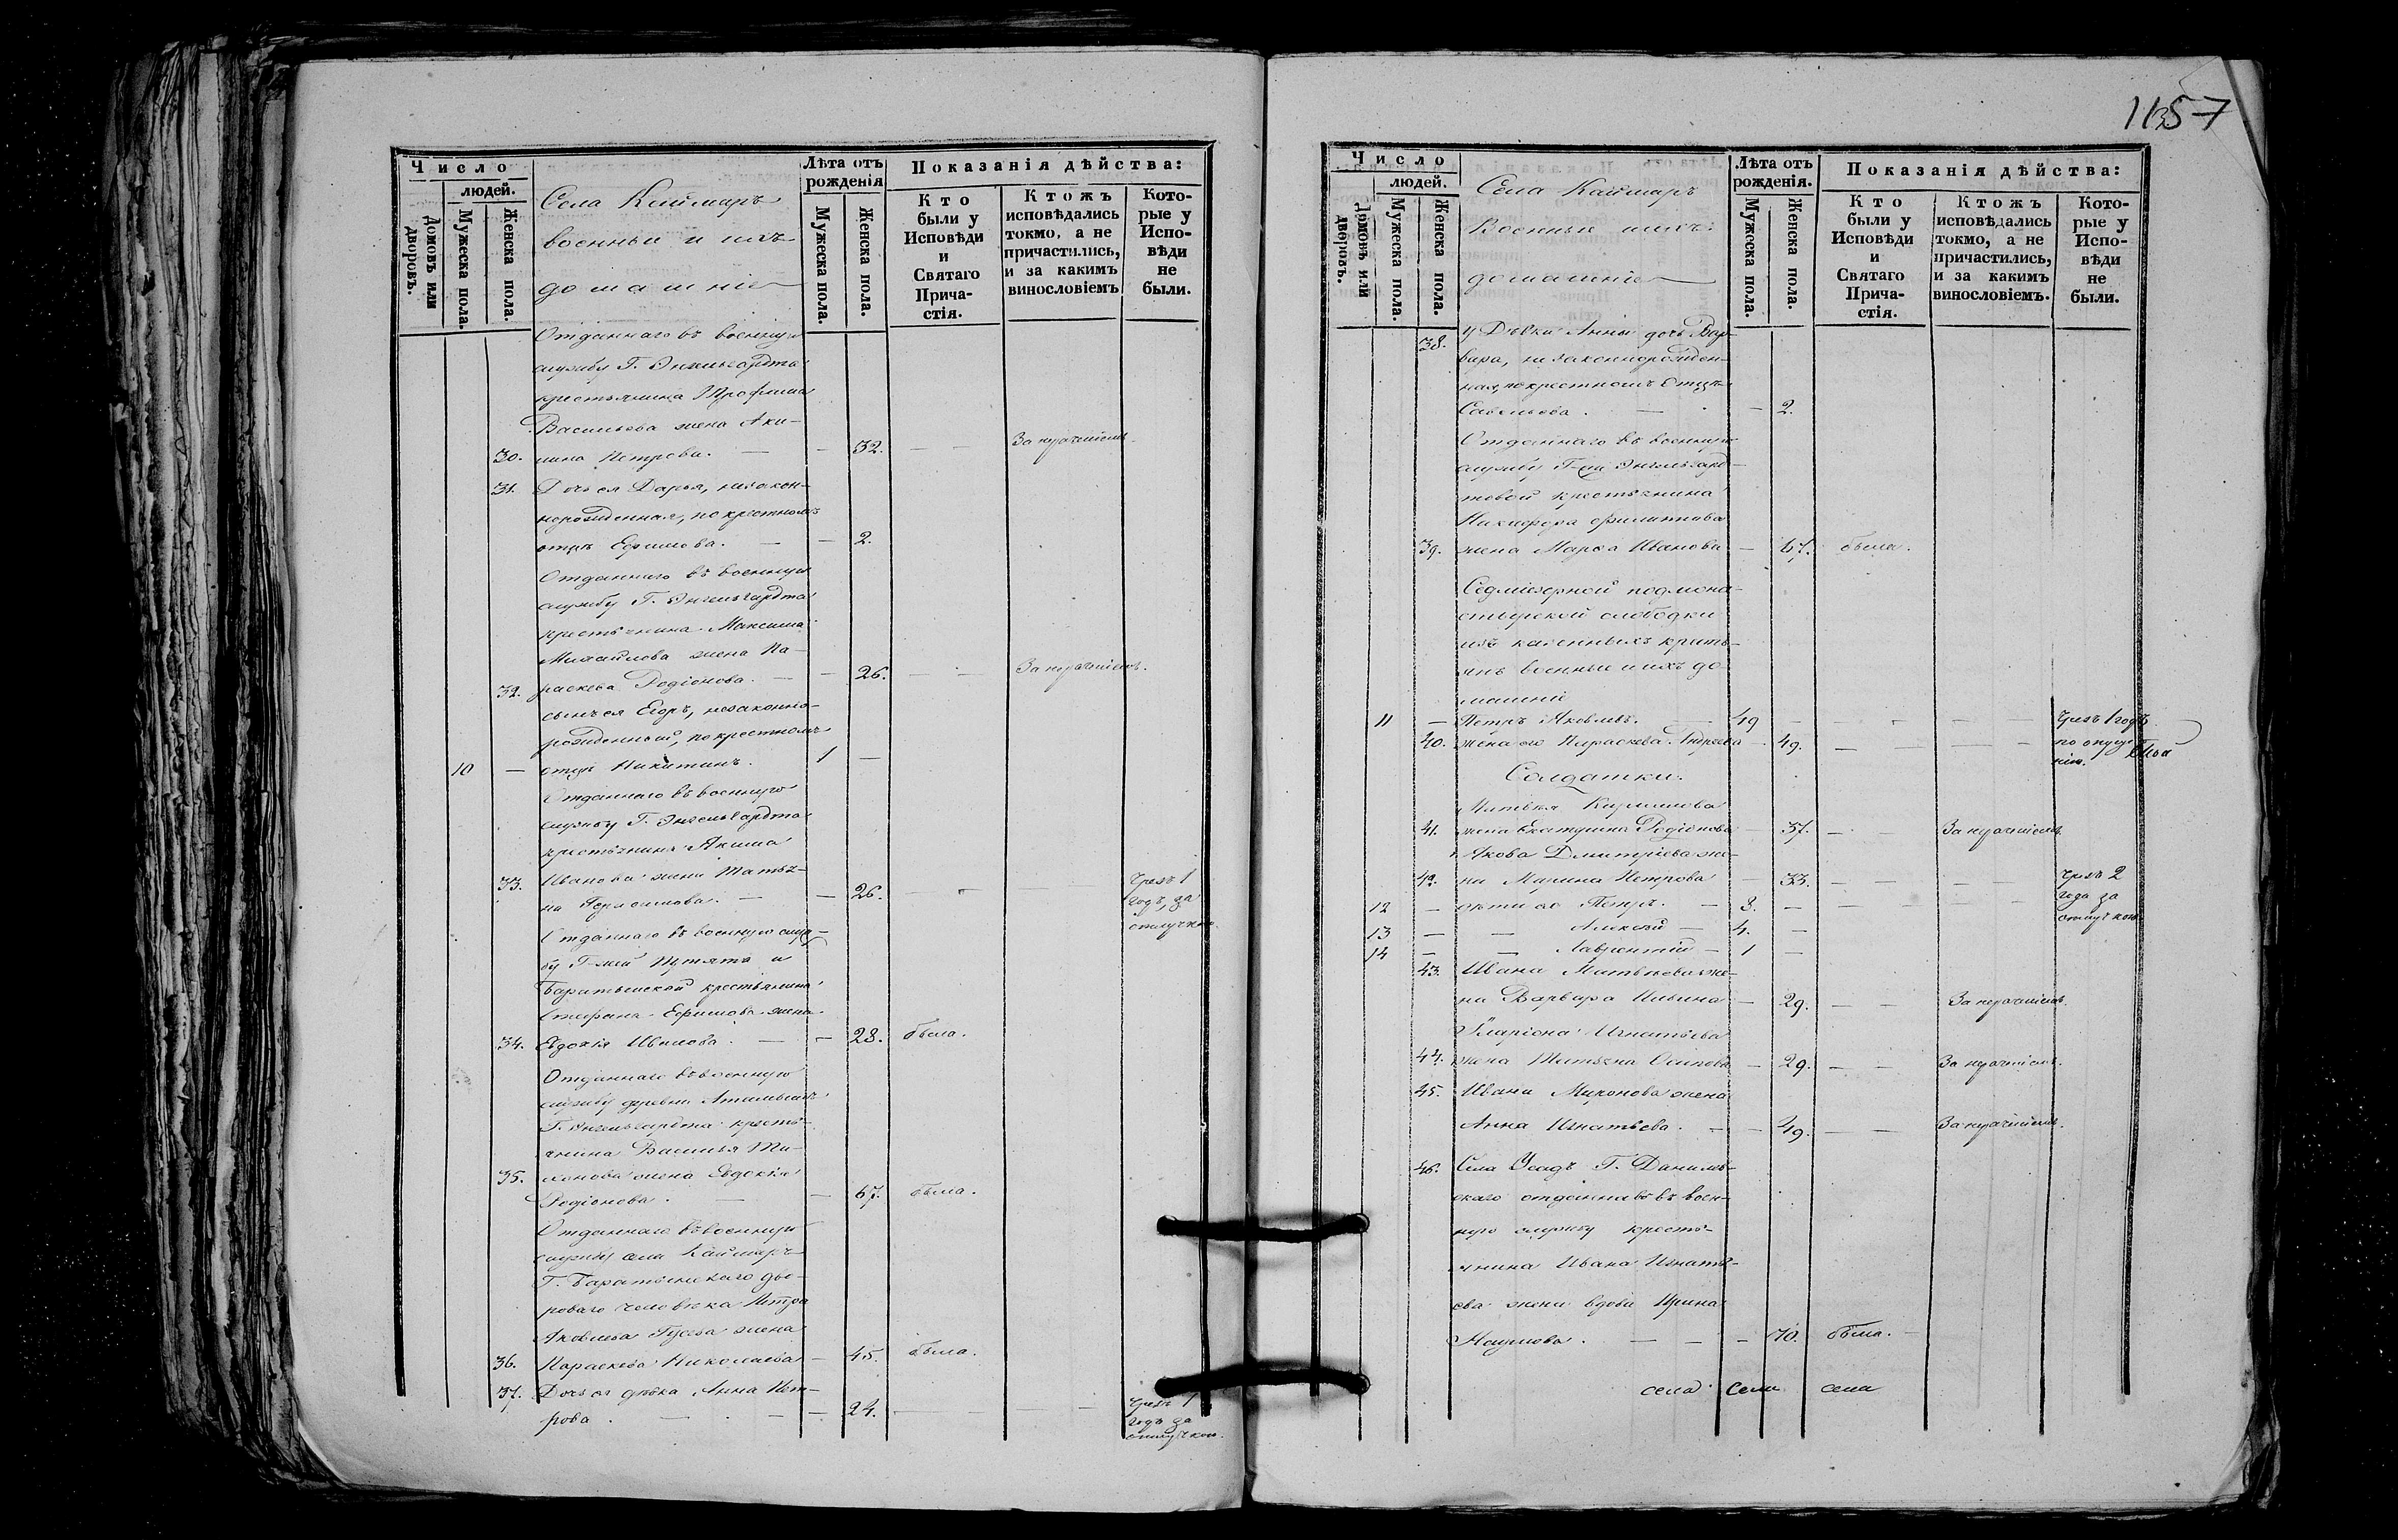 1157
Число
людей.
Домовъ или дворовъ.
Мужеска пола.
Женска пола.
Села Каймаръ
военныи и ихъ
домашніе
Лѣта отъ рожденія
Мужеска пола.
Женска пола.
Показанія дѣйства:
Кто были у Исповѣди и Святаго Прича-стія.
Ктожъ исповѣдались токмо, а не причастились, и за какимъ винословіемъ
Кото-рые у Испо-вѣди не были.
Отданнаго въ военную
службу Г. Энгельгардта
крестьянина Трофима
Васильева жена Аки-
30. лина Петрова. — — 32. — — За нерачѣніемъ.
31. Дочь ея Дарья, незакон-
норожденная, по крестному
отцу Ефимова. — — 2.
Отданнаго въ военную
службу Г. Энгельгардта
крестьянина Максима
Михайлова жена Па-
32. раскева Родіонова. — — 26. — — За нерачѣніемъ.
сынъ ея Егоръ, незаконно-
рожденный, по крестному
10 — отцу Никитинъ. 1 —
Отданнаго въ военную
службу Г. Энгельгардта
крестьянина Акима
33. Иванова жена Татья-
на Герасимова. — — 26. — — Чрезъ 1
годъ, за
отлучкою.
Отданнаго въ военную служ-
бу Г-жей
Баратынской крестьянина
Стефана Ефимова жена
34. Евдокія Иванова. — — 28. была.
Отданнаго въ военную
службу деревни
Г. Энгельгардта кресть-
янина Василья Ти-
35. хонова жена Евдокія
Родіонова. — — 67. была.
Отданнаго въ военную
службу села Каймаръ
Г. Баратынскаго дво-
роваго человѣка Петра
Яковлева Гусева жена
36. Параскева Николаева — 45. была.
37. Дочь ея дѣвка Анна Пет-
рова. — — 24. — — Чрезъ 1
годъ за
отлучкою.
Число
людей.
Домовъ или дворовъ.
Мужеска пола.
Женска пола.
Села Каймаръ
Военные и ихъ
домашніе
Лѣта отъ рожденія.
Мужеска пола.
Женска пола.
Показанія дѣйства:
Кто были у Исповѣди и Святаго Прича-стія.
Ктожъ исповѣдались токмо, а не причастились, и за какимъ винословіемъ.
Кото-рые у Испо-вѣди не были.
38. у Дѣвки Анны дочь Вар-
вара, незаконнорожден-
ная, по крестному отцу
Савельева. — — 2.
Отданнаго въ военную
службу Г-жи Энгельгард-
товой крестьянина
Никифора Филиппова
39. жена Марѳа Иванова — 67. была.
Седміезерной подмона-
стырской слободки
изъ казенныхъ кресть-
янъ военные и ихъ до-
машніе
11 — Петръ Яковлевъ. 49 — — — — Чрезъ 1 годъ
40. жена его Параскева Андреева — 49. — — — по опуще-
нію.
Солдатки.
Матвея Кириллова
41. жена Екатерина Родіонова — 37. — — За нерачѣніемъ.
Якова Дмитріева же-
42. на Марина Петрова — 33. — — — Чрезъ 2
года за
отлучкою.
12 — дѣти ее Петръ. — 8. —
13 — — Алексѣй — 4. —
14 — — Лаврентій — 1 —
43. Ивана Матвѣева же-
на Варвара Ильина — 29. — — За нерачѣніемъ.
Иларіона Игнатьева
44. жена Татьяна Осипова — 29. — — За нерачѣніемъ.
45. Ивана Миронова жена
Анна Игнатьева. — — 49. — — За нерачѣніемъ.
46. Села Усадъ Г. Данилев-
скаго отданнаго въ воен-
ную службу кресть-
янина Ивана Игнать-
ева жена вдова Ирина
Наумова. — — 70. была.
села села села